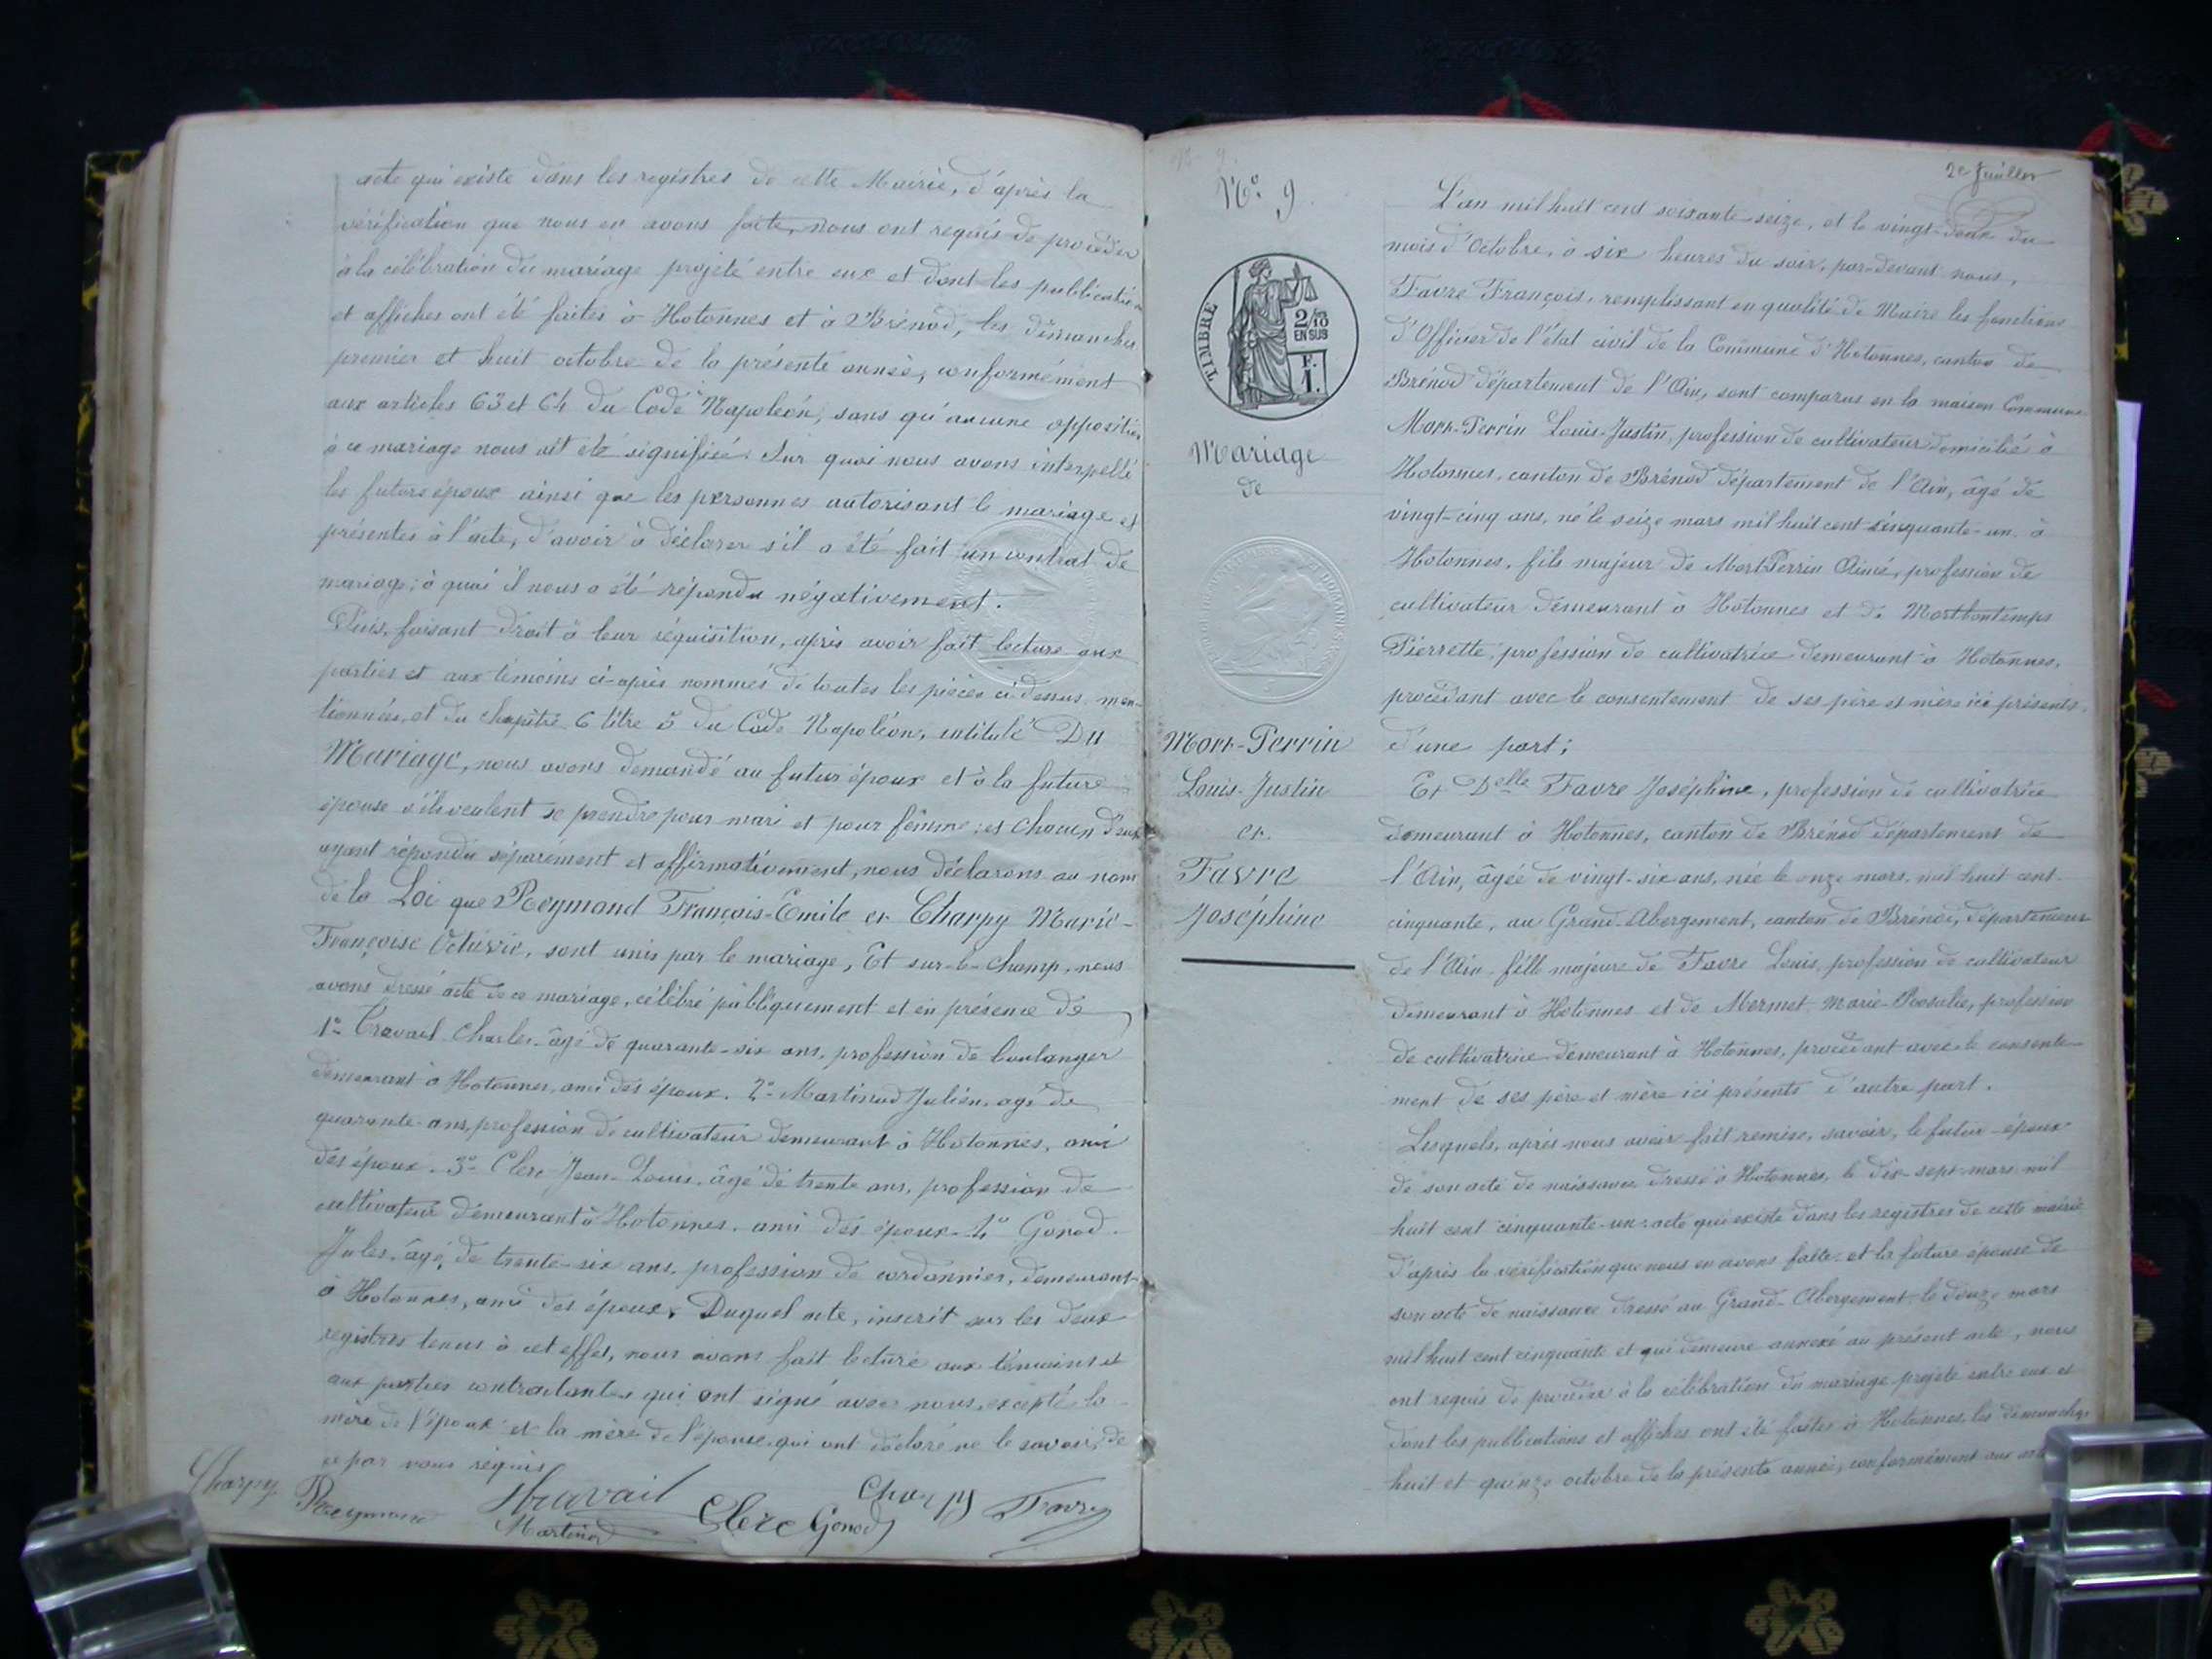 acte qui existe dans les registres de cette Mairie, d'après la
vérification que nous en avons faite, nous ont requis de procéder
à la célébration du mariage projeté entre eux et dont les publications
et affiches ont été faites à Hotonnes et à Brénod, les dimanches
premier et huit octobre de la présente année, conformément
aux articles 63 et 64 du Code Napoléon, sans qu'aucune opposition
à ce mariage nous ait été signifiée. Sur quoi nous avons interpellé
les futurs époux ainsi que les personnes autorisant le mariage et
présentes à l'acte, d'avoir à déclarer s'il a été fait un contrat de
mariage; à quoi il nous a été répondu négativement.
Puis, faisant droit à leur réquisition, après avoir fait lecture aux
parties et aux témoins ci-après nommés de toutes les pièces ci-dessus men-
tionnées, et du chapitre 6 titre 5 du Code Napoléon, intitulé Du
Mariage, nous avons demandé au futur époux et à la future
épouse s'ils veulent se prendre pour mari et pour femme; et chacun d'eux
ayant répondu séparément et affirmativement, nous déclarons au nom
de la Loi que Reymond François-Emile et Charpy Marie-
Françoise Octavie, sont unis par le mariage, Et sur-le-champ, nous
avons dressé acte de ce mariage, célébré publiquement et en présence de
1º Travail Charles âgé de quarante-six ans, profession de boulanger
demeurant à Hotonnes, ami des époux. 2º Martinod Julien, âgé de
quarante ans, profession de cultivateur demeurant à Hotonnes, ami
des époux. 3º Clerc Jean-Louis, âgé de trente ans, profession de
cultivateur demeurant à Hotonnes, ami des époux. 4º Gonod
Jules, âgé de trente-six ans, profession de cordonnier, demeurant
à Hotonnes, ami des époux. Duquel acte, inscrit sur les deux
registres tenus à cet effet, nous avons fait lecture aux témoins et
aux parties contractantes qui ont signé avec nous, excepté la
mère de l'époux et la mère de l'épouse qui ont déclaré ne le savoir, de
ce par nous requis
Charpy Reymond Travail Martinod Clerc Gonod Charpy Favre
2e feuillet
Nº 9.
TIMBRE
2/10
EN SUS
F.
1.
Mariage
de
Mort-Perrin
Louis-Justin
et
Favre
Joséphine
L'an mil huit cent soixante-seize, et le vingt-deux du
mois d'Octobre, à six heures du soir, par-devant nous,
Favre François, remplissant en qualité de Maire les fonctions
d'Officier de l'état civil de la Commune d'Hotonnes, canton de
Brénod département de l'Ain, sont comparus en la maison Commune
Mort-Perrin Louis-Justin, profession de cultivateur domicilié à
Hotonnes, canton de Brénod département de l'Ain, âgé de
vingt-cinq ans, né le seize mars mil huit cent cinquante-un à
Hotonnes, fils majeur de Mort-Perrin Aimé, profession de
cultivateur demeurant à Hotonnes et de Mortbontemps
Pierrette, profession de cultivatrice demeurant à Hotonnes,
procédant avec le consentement de ses père et mère ici présents,
d'une part;
Et Delle Favre Joséphine, profession de cultivatrice
demeurant à Hotonnes, canton de Brénod département de
l'Ain, âgée de vingt-six ans, née le onze mars, mil huit cent-
cinquante, au Grand-Abergement, canton de Brénod, département
de l'Ain fille majeure de Favre Louis, profession de cultivateur
demeurant à Hotonnes et de Mermet Marie-Rosalie, profession
de cultivatrice demeurant à Hotonnes, procédant avec le consente-
ment de ses père et mère ici présents d'autre part.
Lesquels, après nous avoir fait remise, savoir, le futur époux
de son acte de naissance dressé à Hotonnes, le dix-sept mars mil
huit cent cinquante-un acte qui existe dans les registres de cette mairie
d'après la vérification que nous en avons faite et la future épouse de
son acte de naissance dressé au Grand-Abergement, le douze mars
mil huit cent cinquante et qui demeure annexé au présent acte, nous
ont requis de procéder à la célébration du mariage projeté entre eux et
dont les publications et affiches ont été faites à Hotonnes, les dimanches
huit et quinze octobre de la présente année, conformément aux